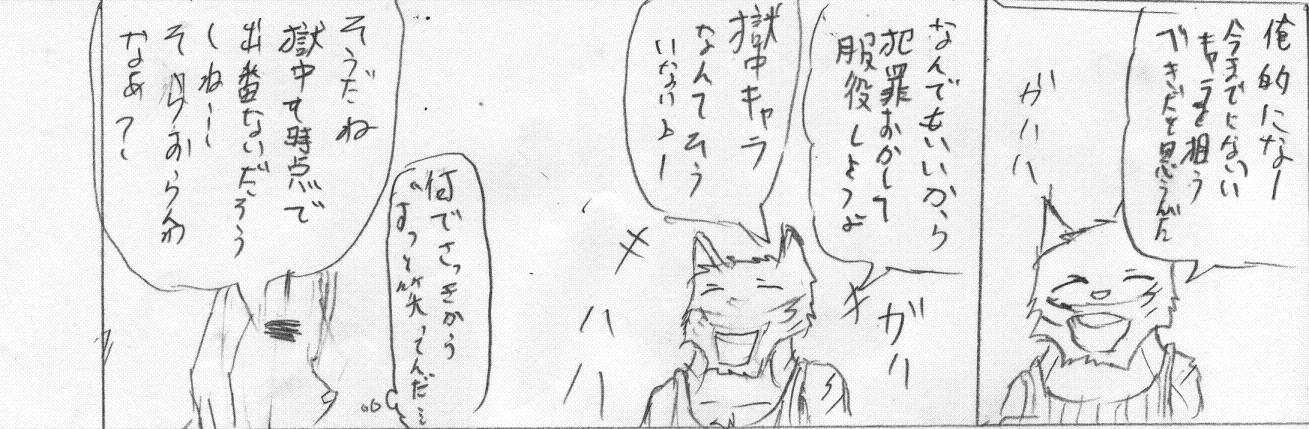 俺的になー
今までにない
キャラを担う
べきだと思うんだ
ガハハハ
なんでもいいから
犯罪おかして
服役しようよ
獄中キャラ
なんてそう
いないよー
ガハ
ハハ
そうだね
獄中な時点で
出番ないだろう
しねー
なあ？
何でさっきから
ずっと笑ってんだ…